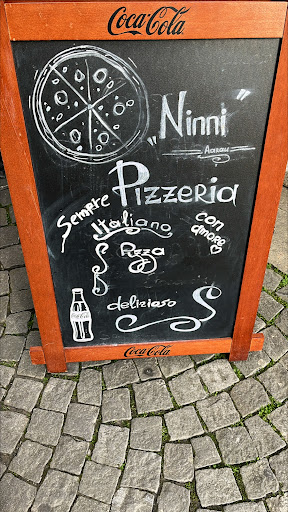 Coca-Cola
„Ninni"
Aarau
Pizzeria
Sempre
Italiano
con amore
Pizza
delizioso
Coca-Cola